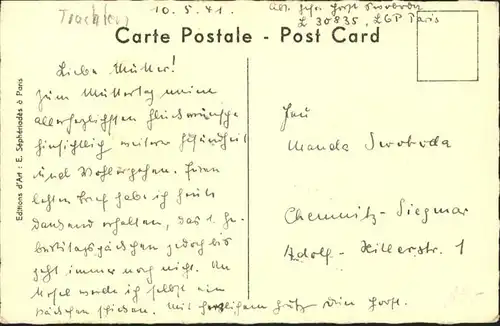 Trachten
10.5.41.
Abs. Gefr. Horst Swoboda
L 30835, LGP Paris
Carte Postale - Post Card
Editions d'Art : E. Séphériadès à Paris
Liebe Mutter!
Zum Muttertag meine
allerherzlichsten Glückwünsche
hinsichtlich weiterer Gesundheit
und Wohlergehen. Deinen
letzten Brief habe ich heute
dankend erhalten, das 1. Ge-
burtstagspäckchen jedoch bis
jetzt immer noch nicht. An
werde ich selbst ein
Päckchen schicken. Mit herzlichem Gruß Dein Horst.
Frau
Manda Swoboda
Chemnitz-Siegmar
Adolf-Hitlerstr. 1